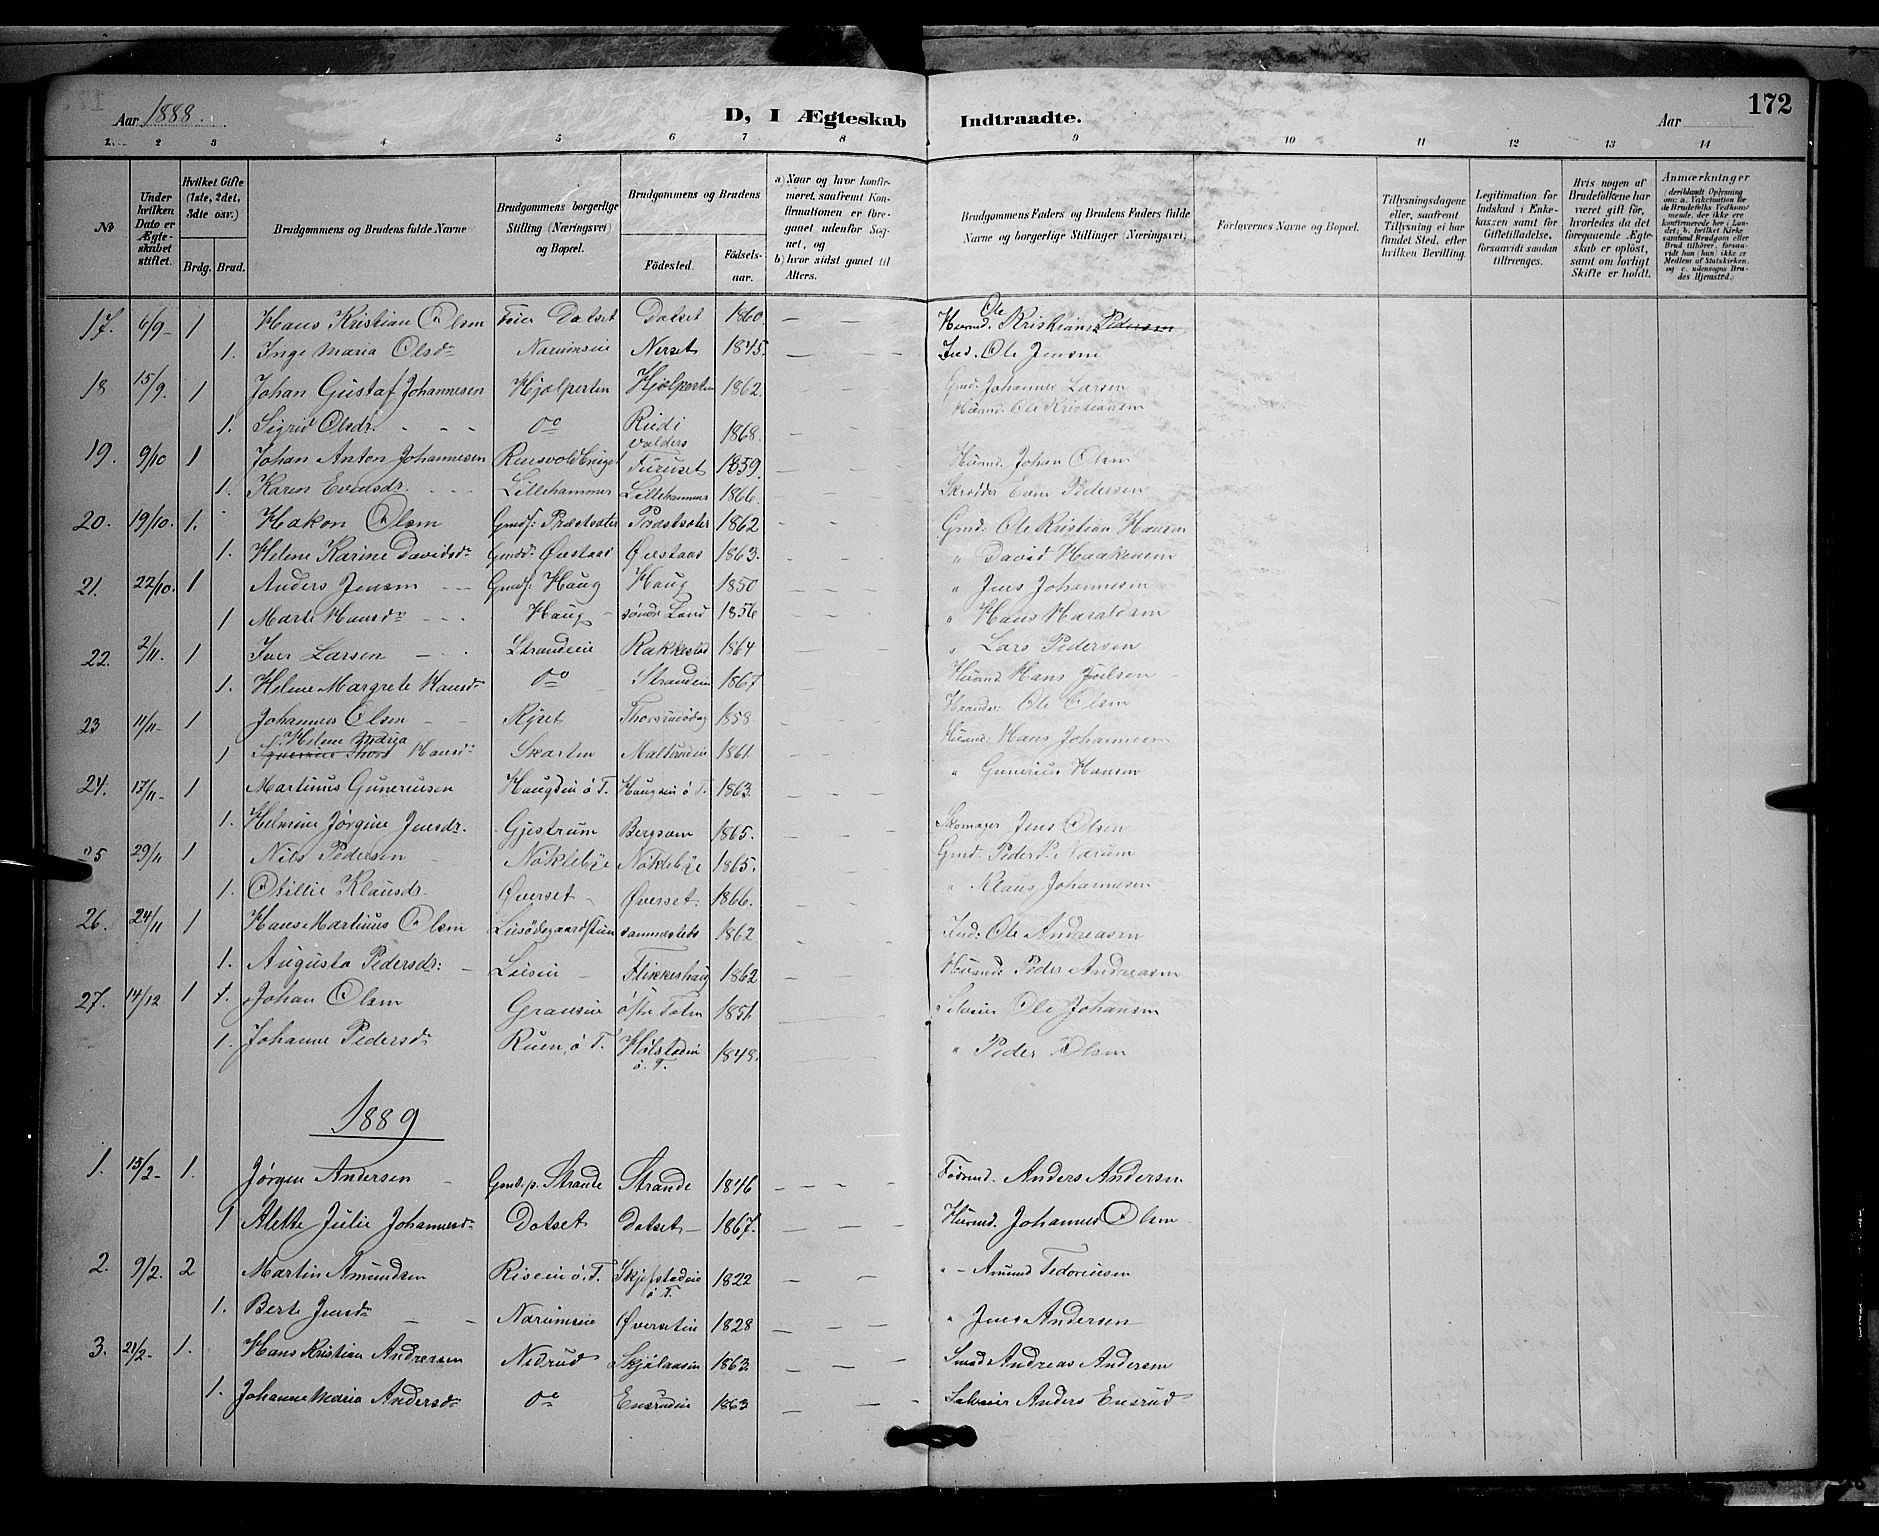 172
Aar 1888.
D, I Ægteskab Indtraadte.
Aar
1. 2 3 4 5 6 7 8 9 10 11 12 13 14
№
Under hvilken Dato er Ægteskabet stiftet.
Hvilket Gifte (1ste, 2det, 3die osv.)
Brdg. Brud.
Brudgommens og Brudens fulde Navne
Brudgommens borgerlige Stilling (Næringsvei) og Bopæl.
Brudgommens og Brudens
Fødested.
Fødselsaar.
a) Naar og hvor konfirmeret, saafremt Konfirmationen er foregaaet udenfor Sognet, og
b) hvor sidst gaaet til Alters.
Brudgommens Faders og Brudens Faders fulde Navne og borgerlige Stillinger (Næringsvei)
Forlovernes Navne og Bopæl.
Tillysningsdagene eller, saafremt Tillysning ei har fundet Sted, efter hvilken Bevilling.
Legitimation for Indskud i Enkekassen samt for Giftetilladelse, forsaavidt saadan tiltrænges.
Hvis nogen af Brudefolkene har været gift før, hvorledes da det foregaaende Ægteskab er opløst, samt om lovligt Skifte er holdt.
Anmærkninger (deriblandt Oplysning om: a. Vakcination for de Brudefolks Vedkommende, der ikke ere konfirmerede her i Landet; b. hvilket Kirkesamfund Brudgom eller Brud tilhører, forsaavidt han (hun) ikke er Medlem af Statskirken, og c. udensogns Brudes Hjemsted.)
17. 6/9- 1 Hans Kristian Olsen Foier Dotset Dotset 1860. — — Huusmd. Ole Kristians Pedersen
1. Inge Maria Olsdr Narumseie Nerset 1845. — — Ind. Ole Jensen
18 15/9. 1 Johan Gustaf Johannesen Hjelperten Hjelperten 1862. Gmd. Johannes Larsen
1. Sigrid Olsdr. do Riedi Valders 1868. Huusmd. Ole Kristiansen
19. 9/10 1 Johan Anton Johannesen Furuset 1859. Huusmd. Johan Olsen
1. Karen Evensdr. Lillehammer Lillehammer 1866. Skrædder Even Pedersen
20. 19/10. 1. Hakon Olsen Gmdf. Præstsæter Præstsæter 1862 Gmd: Ole Kristian Hansen
1. Helene Karine Davidsdr Gmdd. Øvstaas Øvstaas 1863. " David Haakensen
21. 22/10. 1 Anders Jensen Gmdf. Haug Haug 1850 " Jens Johannesen
1 Marte Hansdr Haug søndre Land 1856 " Hans Haraldsen
22. 2/11. 1 Iver Larsen Strandeie Rakkestad 1864 " Lars Pedersen
1. Helene Margrete Hansdr do Strandeie 1867 Huusmd Hans Julsen
23 11/11- 1 Johannes Olsen Rjset 1858. Ole Olsen
Helene Maria
1 Hansdr Skarten 1861. Huusmd: Hans Johannesen
24. 17/11 1 Martinus Guneriussen Haugseie ø T. Haugseie ø T. 1863. " Gunerius Hansen
1. Helmine Jørgine Jensdr. Gjestrum Bergsveen 1865. Skomager Jens Olsen
25 29/11 1 Nils Pedersen Nøklebye Nøklebye 1865. Gmd. Peder P. Narum
1. Otillie Klausdr. Øverset Øverset. 1866. " Klaus Johannesen
26. 24/11 1 Hans Martinus Olsen sammesteds 1862 Ind: Ole Andreasen
1. Augusta Pedersdr: Flikkeshaug 1862 Huusmd: Peder Andreasen
27. 14/12 1 1. Johan Olsen Granseie østre Toten 1851. Selveier Ole Johansen
1. Johanne Pedersdr Ruen, ø T. Hølstadeie ø. T. 1848. " Peder Olsen
1889
1. 15/2- 1. Jørgen Andersen Gmd. p. Strande Strande 1846 Anders Andersen
1 Alette Julie Johannesdr Dotset dotset 1867. Huusmd. Johannes Olsen
2. 9/2. 2 Martin Amundsen Riseeie ø. T. Skjefstadeie ø T. 1822 " Amund Tedoriussen
1. Berte Jensdr Narumseie Øverseteie 1828 " Jens Andersen
3. 21/2- 1. Hans Kristian Andreasen Nedrud Skjølaaseie 1863. Smed Andreas Andersen
1. Johanne Maria Andersdr do Ensrudeie 1863 Selveier Anders Ensrud